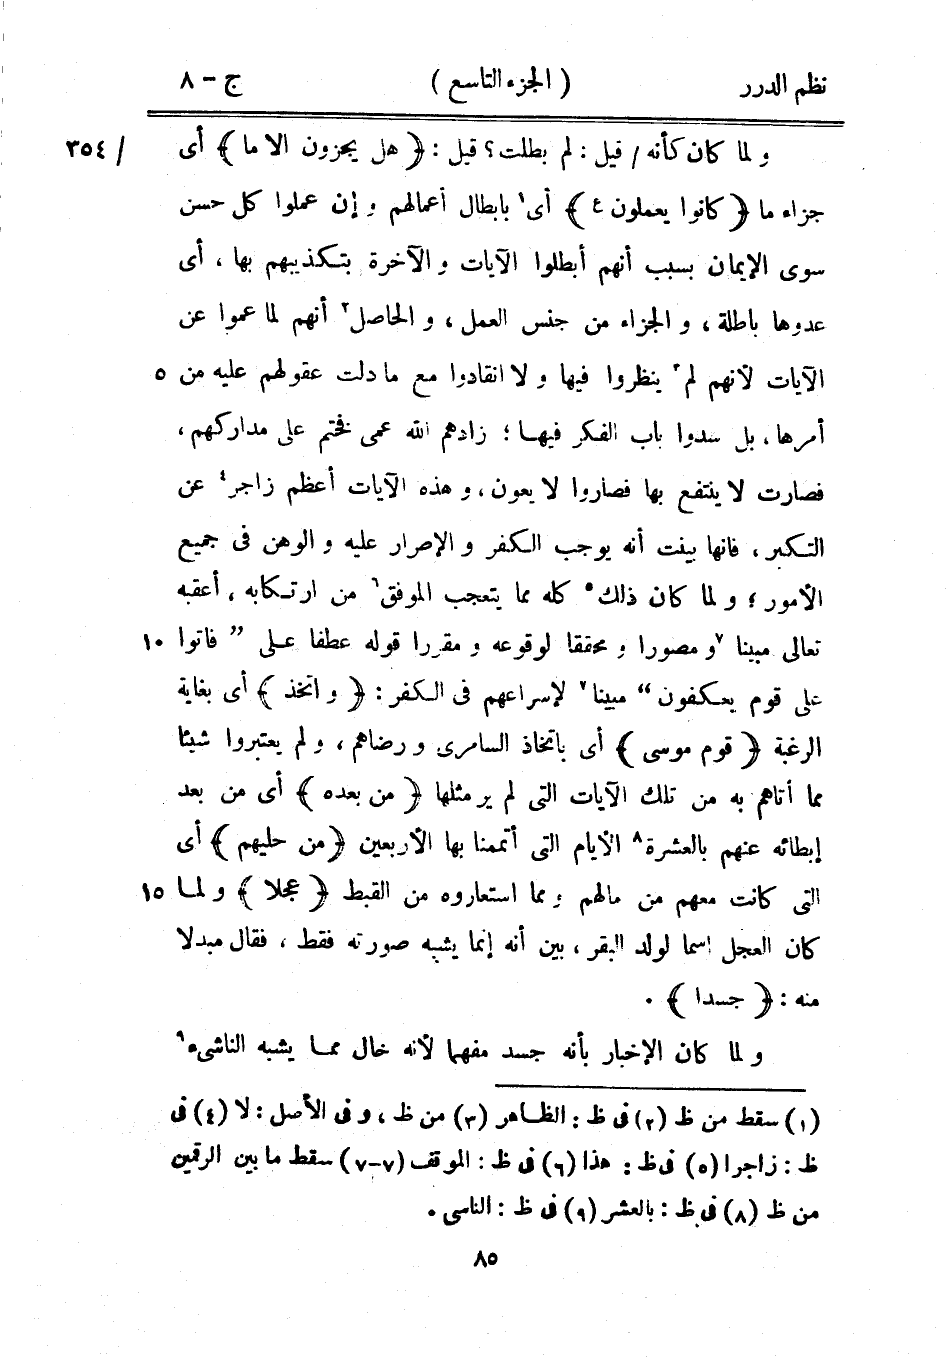 نظم الدرر ( الجزء التاسع ) ج - ٨
و لما كان كأنه / قيل : لم بطلت ؟ قيل : ﴿ هل يجزون الا ما ﴾ أى / ٣٥٤
جزاء ما ﴿ كانوا يعملون ع ﴾ أى١ بابطال أعمالهم و إن عملوا كل حسن
سوى الإيمان بسبب أنهم أبطلوا الآيات و الآخرة بتكذيبهم بها ، أى
عدوها باطلة ، و الجزاء من جنس العمل ، و الحاصل٢ أنهم لما عموا عن
الآيات لأنهم لم٣ ينظروا فيها و لا انقادوا مع ما دلت عقولهم عليه من ٥
أمرها ، بل سدوا باب الفكر فيها ؛ زادهم الله عمى فختم على مداركهم ،
فصارت لا ينتفع بها فصاروا لا يعون ، و هذه الآيات أعظم زاجر٤ عن
التكبر ، فانها بينت أنه يوجب الكفر و الإصرار عليه و الوهن فى جميع
الأمور ؛ و لما كان ذلك٥ كله مما يتعجب الموفق٦ من ارتكابه ، أعقبه
تعالى مبينا ٧و مصورا و محققا لوقوعه و مقررا قوله عطفا على ” فاتوا ١٠
على قوم يعكفون “ مبينا٧ لإسراعهم فى الكفر : ﴿ و اتخذ ﴾ أى بغاية
الرغبة ﴿ قوم موسى ﴾ أى باتخاذ السامرى و رضاهم ، و لم يعتبروا شيئا
مما أتاهم به من تلك الآيات التى لم ير مثلها ﴿ من بعده ﴾ أى من بعد
إبطائه عنهم بالعشرة٨ الأيام التى أتممنا بها الأربعين ﴿ من حليهم ﴾ أى
التى كانت معهم من مالهم و مما استعاروه من القبط ﴿ عجلا ﴾ و لما ١٥
كان العجل اسما لولد البقر ، بين أنه إنما يشبه صورته فقط ، فقال مبدلا
منه : ﴿ جسدا ﴾ .
و لما كان الإخبار بأنه جسد مفهما لأنه خال مما يشبه الناشىء٩
(١) سقط من ظ (٢) فى ظ : الظاهر (٣) من ظ ، و فى الأصل : لا (٤) فى
ظ : زاجرا (٥) فى ظ : هذا (٦) فى ظ : الموقف (٧-٧) سقط ما بين الرقمين
من ظ (٨) فى ظ : بالعشر (٩) فى ظ : الناسى .
٨٥